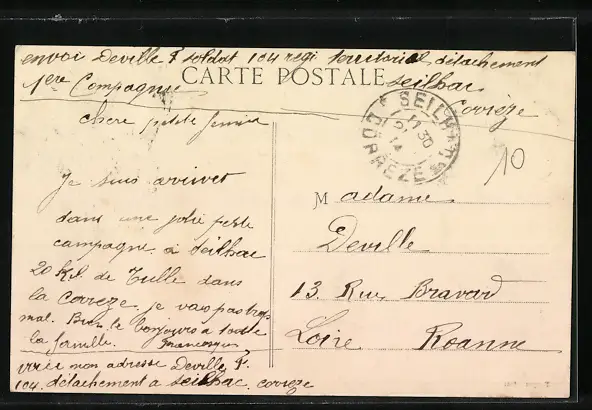 envoi Deville F soldat 104 regi territorial détachement
1ère Compagnie seilhac
Corrèze
CARTE POSTALE
SEILHAC
11 30
14
CORREZE
10
chere petite
Je suis arrivet
dans une jolie petite
campagne. a Seilhac
20 Kil. de Tulle dans
la Correze. je vais pas trop
mal. Bien le bonjours a toute
la famille.
voici mon adresse Deville F.
104. détachement a seilhac. correze
Madame
Deville
13. Rue Bravard
Loire Roanne